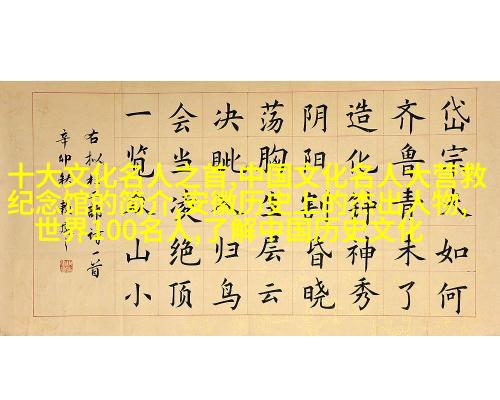 十大文化名人之首,中国文化名人大营救
纪念馆的简介,安徽历史上的杰出人物,
世界100名人,了解中国历史文化
岱宗夫如何
齐鲁青未了
造化钟神秀
阴阳割昏晓
荡胸生层云
决眦入归鸟
会当凌绝顶
一览众山小
右拟 诗一首
辛卯秋